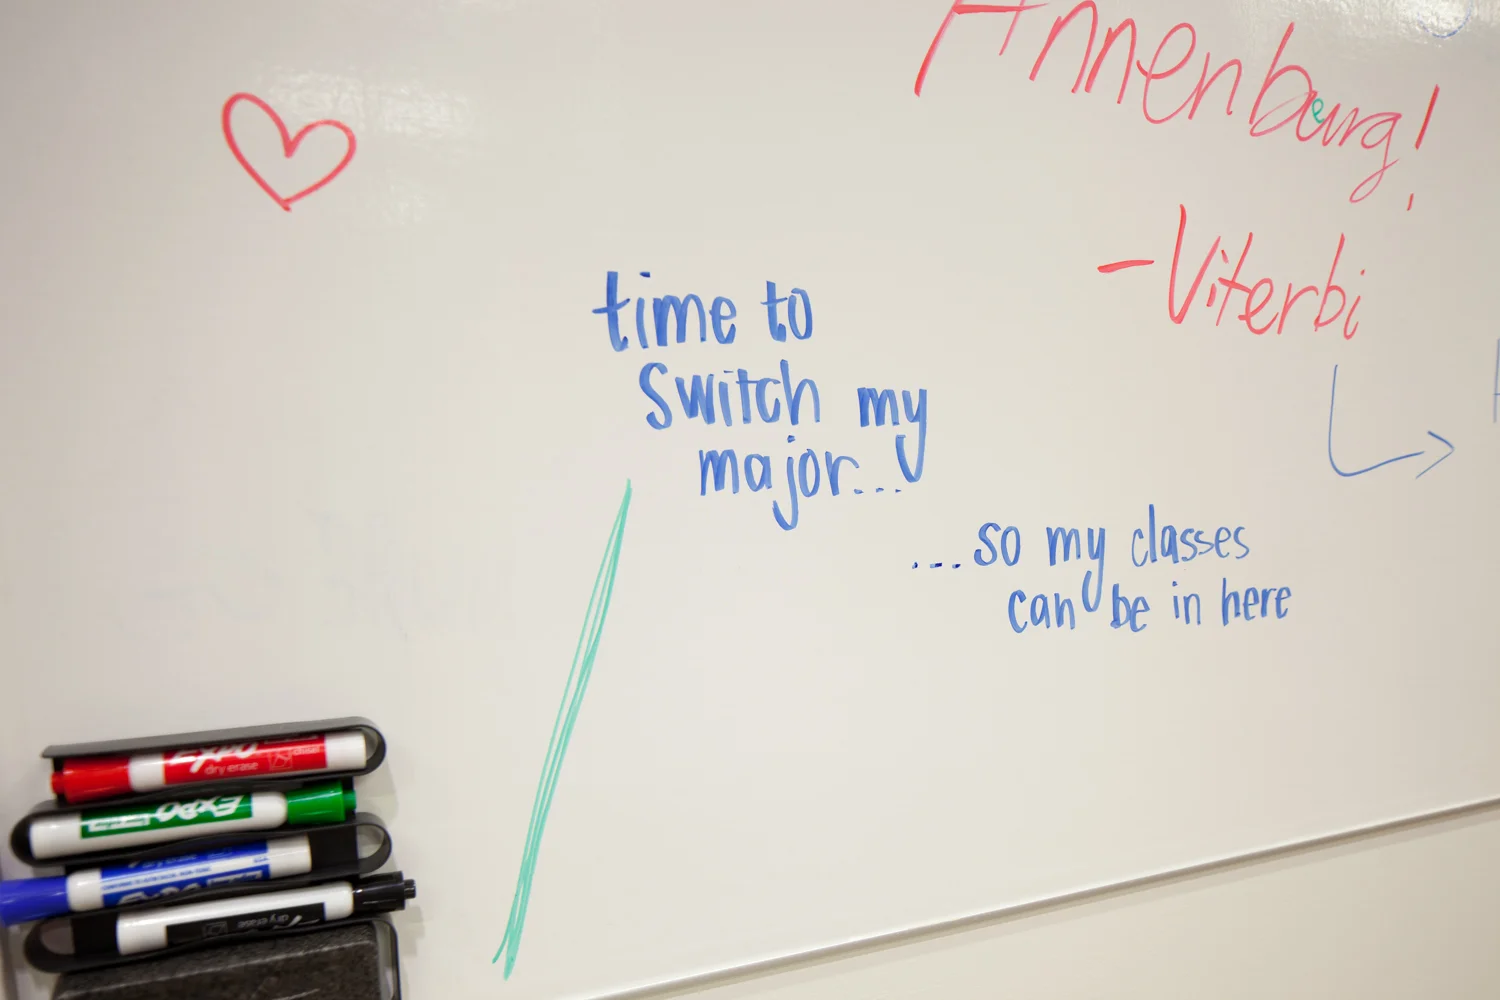 Annenburg!
- Viterbi
time to
switch my
major...
...so my classes
can be in here
EXPO
dry erase
chisel
EXPO
EXPO
dry erase